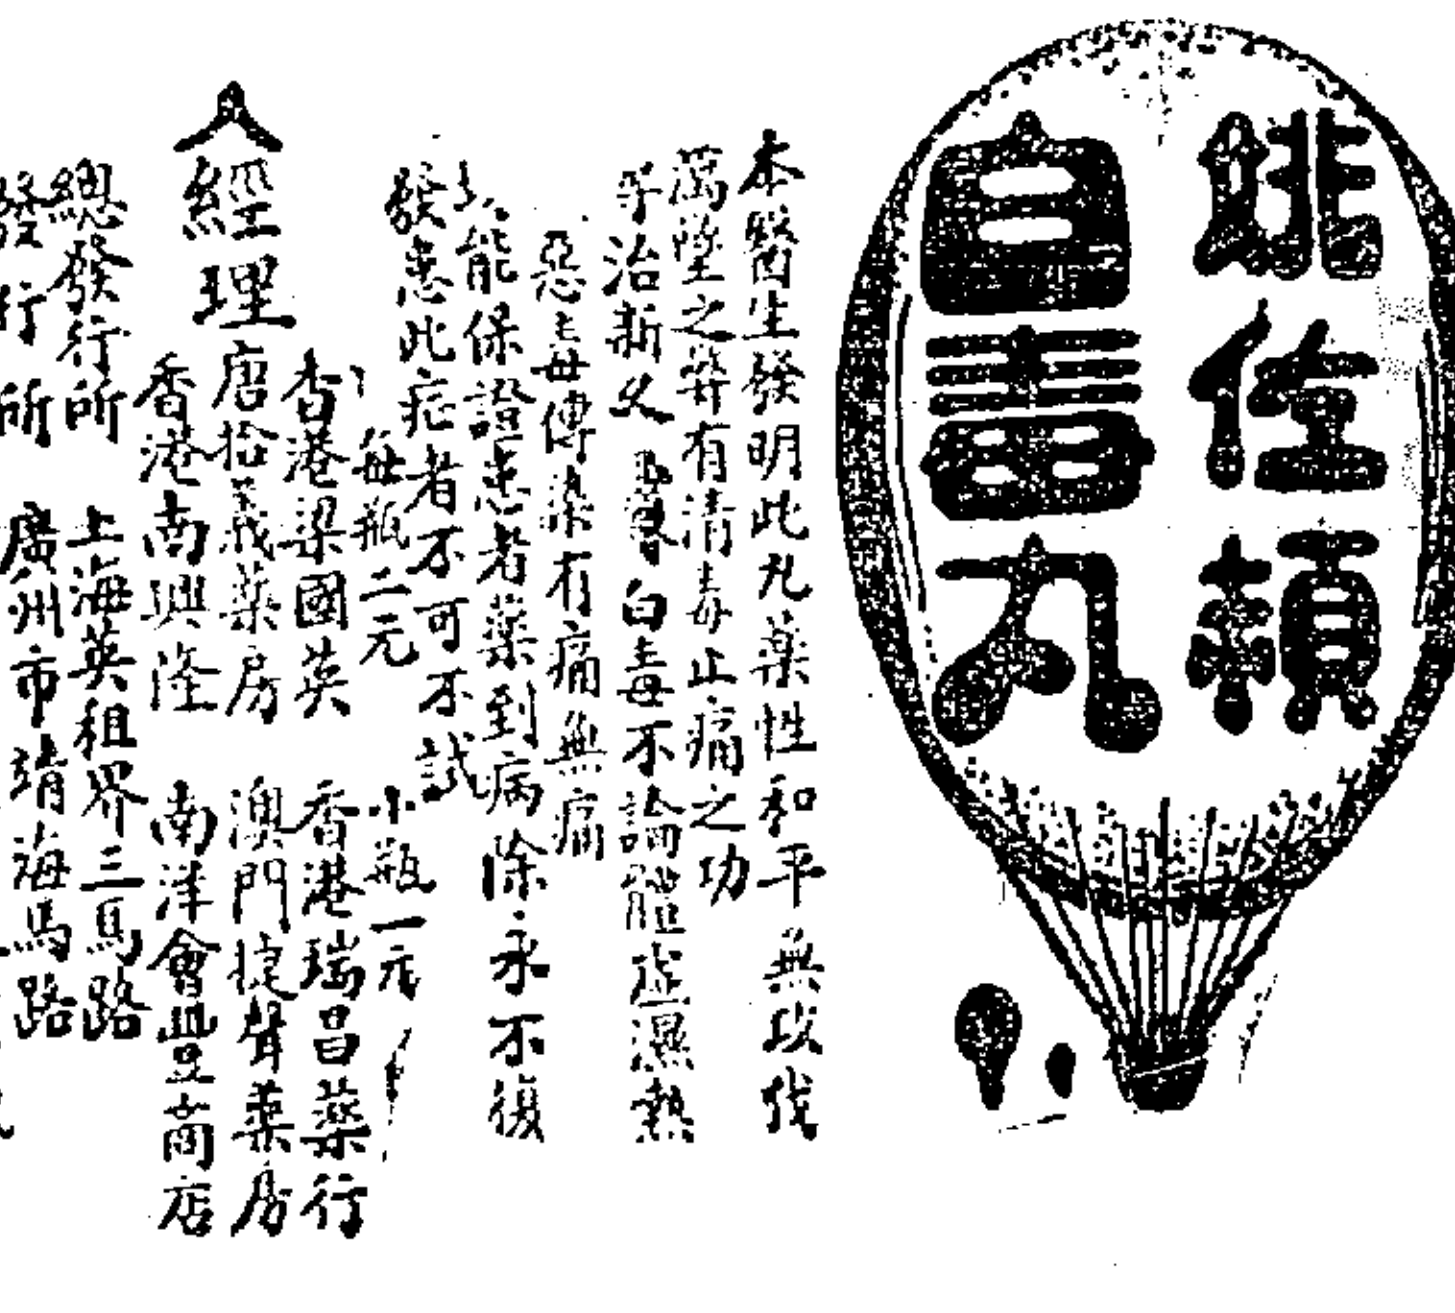 姚佐頓
白毒丸
本醫生發明此丸藥性和平無攻伐
滯墜之弊有清毒止痛之功
治新久 白毒不論體虛濕熱
惡毒傳染有痛無痛
能保證患者藥到病除永不復
發患此症者不可不試
每瓶二元 小瓶一元
香港梁國英 香港瑞昌藥行
唐拾義藥房 澳門捷聲藥房
香港南興隆 南洋會豐商店
經理人
總發行所 上海英租界三馬路
發行所 廣州市靖海馬路